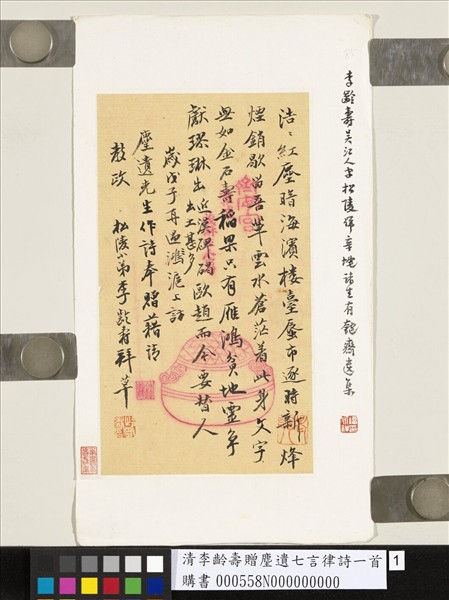 李齡壽吳江人字松陵號辛垞諸生有匏齋遺集
浩〻紅塵暗海濱樓臺蜃市逐時新烽
煙銷歇留吾輩雲水蒼茫着此身文字
無如金石壽稻粱只有雁鴻貧地靈爭
獻璆琳出近漢碑碣出土甚多歐趙而今要替人
歲戊子再過滬上訪
塵遺先生作詩奉贈藉請
教政 松陵小弟李齡壽拜草
清李齡壽贈塵遺七言律詩一首
購書 000558N000000000
1